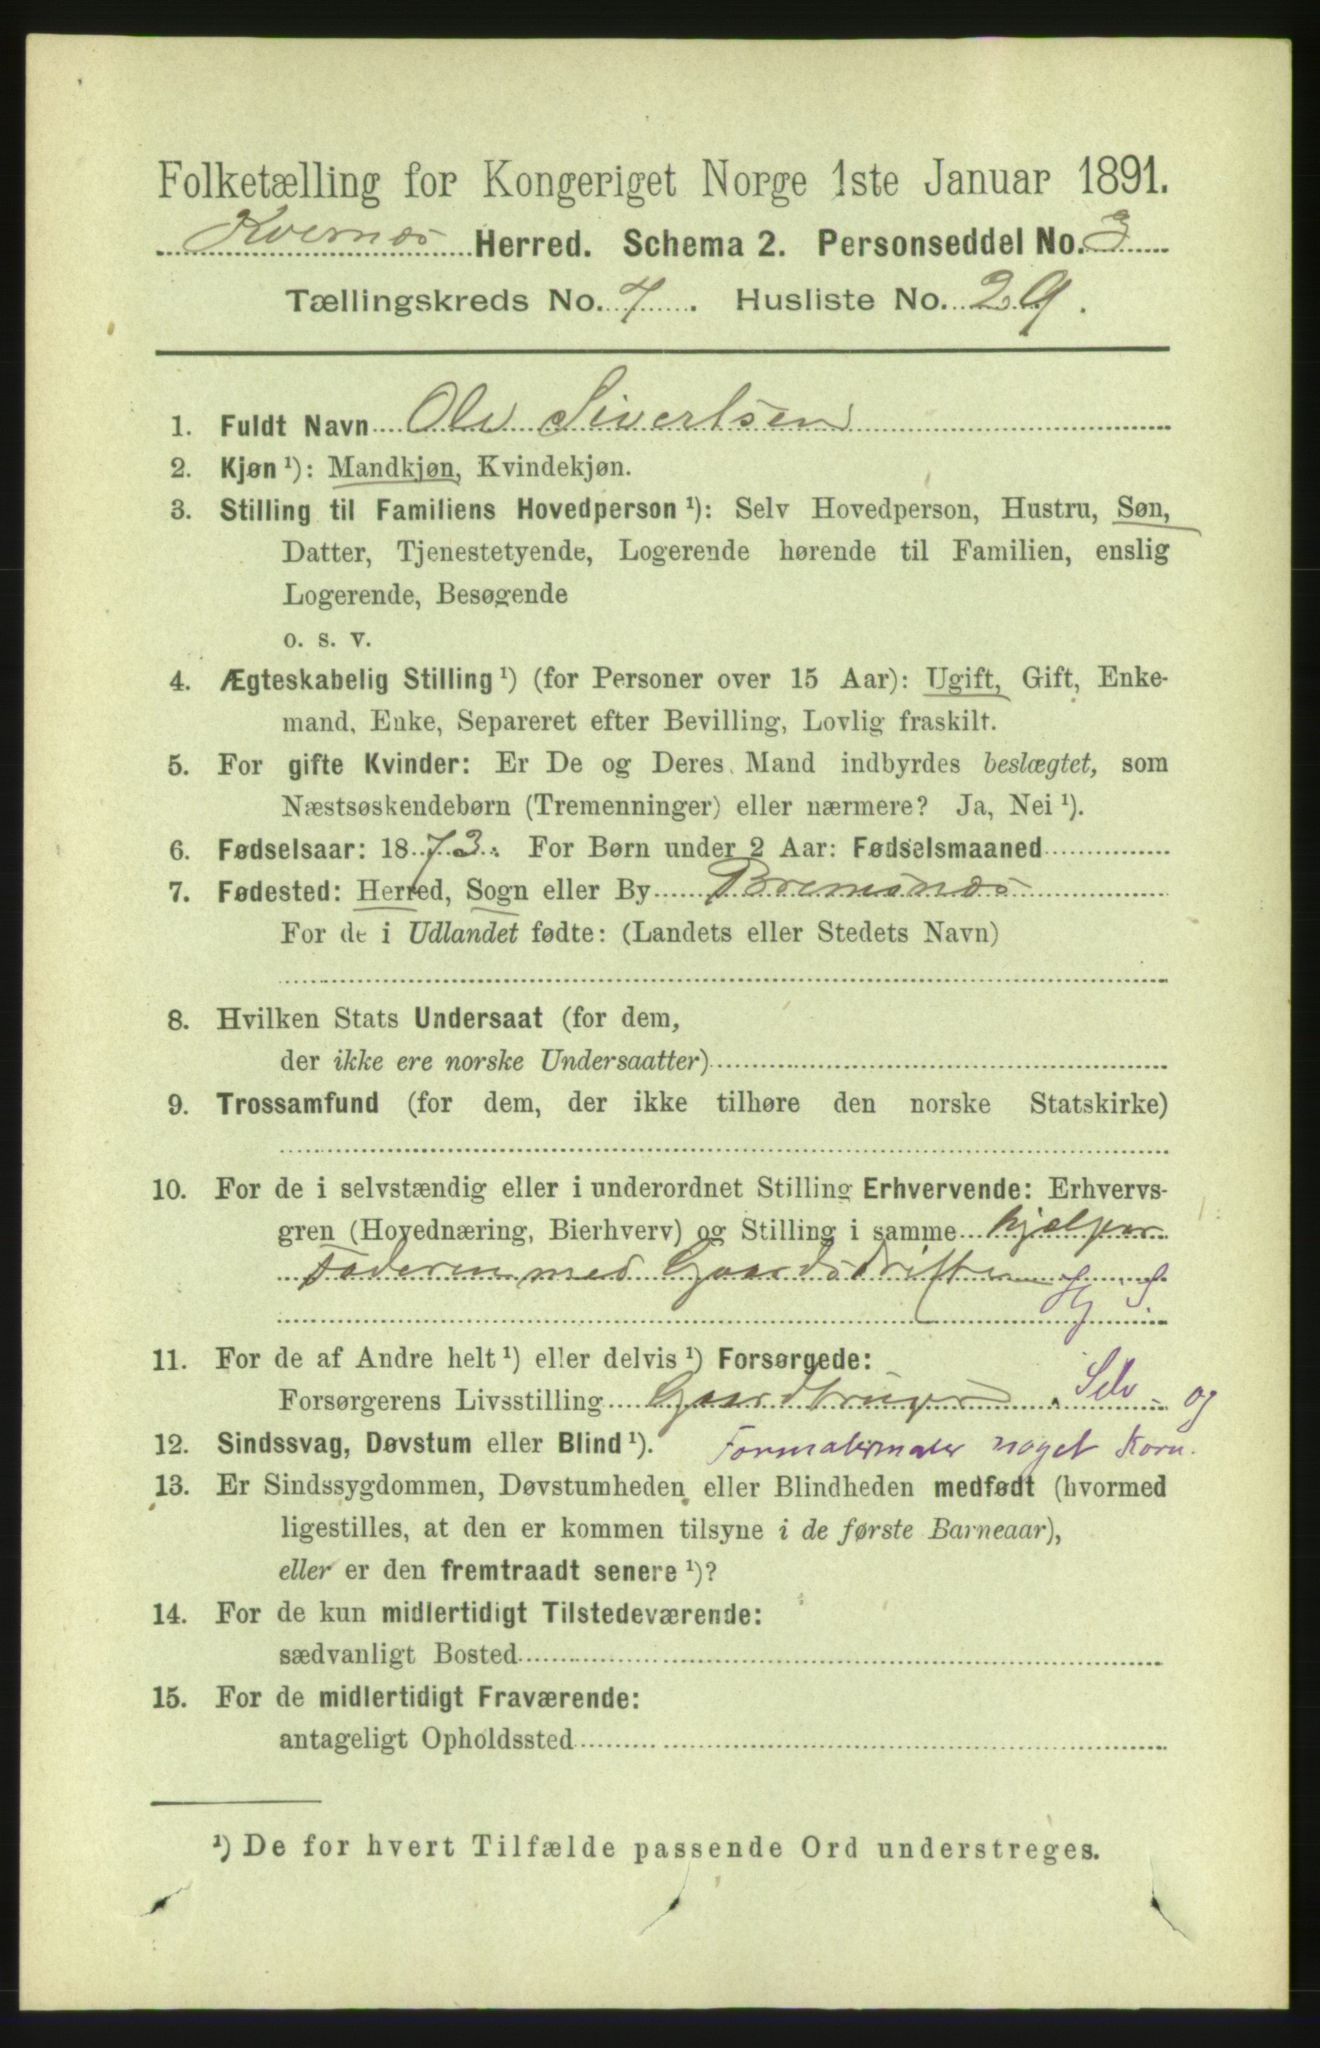 Folketælling for Kongeriget Norge 1ste Januar 1891.
Kvernæs Herred. Schema 2. Personseddel No. 3
Tællingskreds No. 7. Husliste No. 29.
1. Fuldt Navn Ole Sivertsen
2. Kjøn ¹): Mandkjøn, Kvindekjøn.
3. Stilling til Familiens Hovedperson ¹): Selv Hovedperson, Hustru, Søn,
Datter, Tjenestetyende, Logerende hørende til Familien, enslig
Logerende, Besøgende
o. s. v.
4. Ægteskabelig Stilling ¹) (for Personer over 15 Aar): Ugift, Gift, Enke-
mand, Enke, Separeret efter Bevilling, Lovlig fraskilt.
5. For gifte Kvinder: Er De og Deres Mand indbyrdes beslægtet, som
Næstsøskendebørn (Tremenninger) eller nærmere? Ja, Nei ¹).
6. Fødselsaar: 1873. For Børn under 2 Aar: Fødselsmaaned
7. Fødested: Herred, Sogn eller By Bremsnæs
For de i Udlandet fødte: (Landets eller Stedets Navn)
8. Hvilken Stats Undersaat (for dem,
der ikke ere norske Undersaatter)
9. Trossamfund (for dem, der ikke tilhøre den norske Statskirke)
10. For de i selvstændig eller i underordnet Stilling Erhvervende: Erhvervs-
gren (Hovednæring, Bierhverv) og Stilling i samme hjælper
Faderen med Gaardsdriften
11. For de af Andre helt ¹) eller delvis ¹) Forsørgede:
Forsørgerens Livsstilling Gaardbruger. Selv- og
12. Sindssvag, Døvstum eller Blind ¹). noget Korn.
13. Er Sindssygdommen, Døvstumheden eller Blindheden medfødt (hvormed
ligestilles, at den er kommen tilsyne i de første Barneaar),
eller er den fremtraadt senere ¹)?
14. For de kun midlertidigt Tilstedeværende:
sædvanligt Bosted
15. For de midlertidigt Fraværende:
antageligt Opholdssted
¹) De for hvert Tilfælde passende Ord understreges.